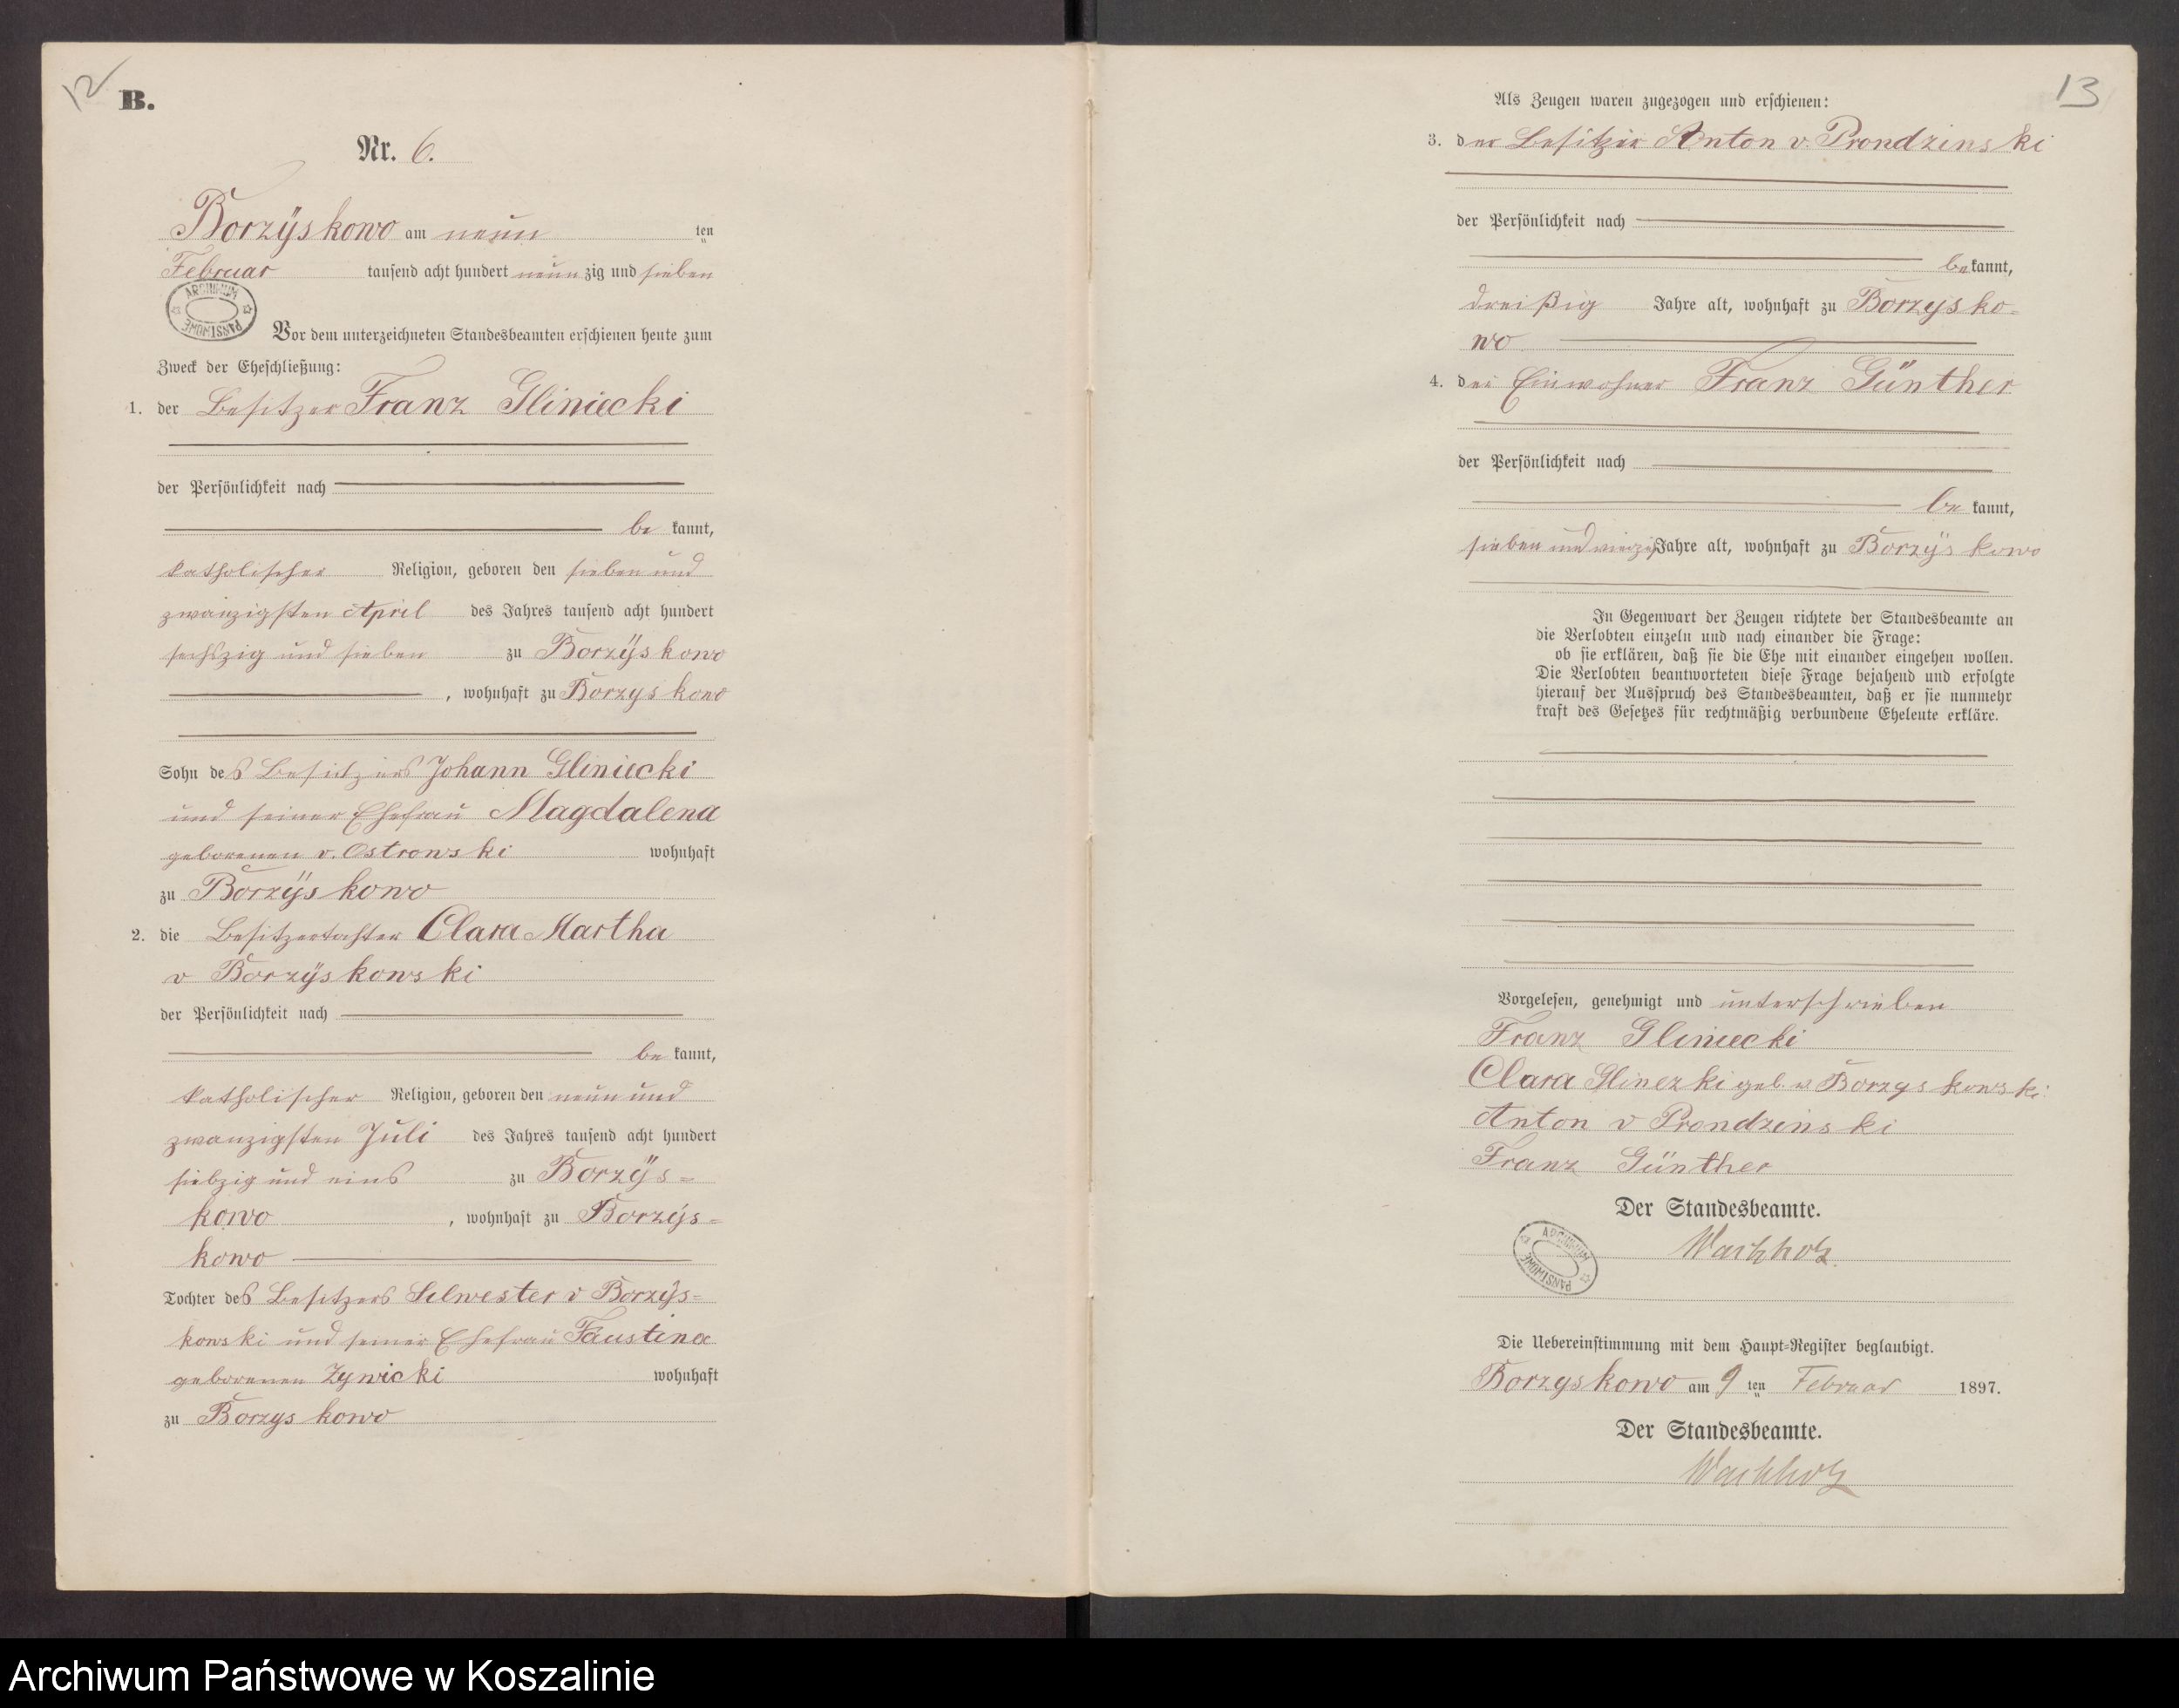 12
B.
Nr. 6.
Borzÿskowo am neun ten
Februar tausend acht hundert neunzig und sieben
ARCHIWUM PAŃSTWOWE
Vor dem unterzeichneten Standesbeamten erschienen heute zum
Zweck der Eheschließung:
1. der Besitzer Franz Gliniecki
der Persönlichkeit nach
be kannt,
katholischer Religion, geboren den sieben und
zwanzigsten April des Jahres tausend acht hundert
sechszig und sieben zu Borzÿskowo
, wohnhaft zu Borzyskowo
Sohn des Besitzers Johann Gliniecki
und seiner Ehefrau Magdalena
geborenen v. Ostrowski wohnhaft
zu Borzÿskowo
2. die Besitzertochter Clara Martha
v Borzÿskowski
der Persönlichkeit nach
be kannt,
katholischer Religion, geboren den neun und
zwanzigsten Juli des Jahres tausend acht hundert
siebzig und eins zu Borzÿs=
kowo , wohnhaft zu Borzÿs=
kowo
Tochter des Besitzers Selwester v Borzÿs=
kowski und seiner Ehefrau Faustina
geborenen Zywicki wohnhaft
zu Borzyskowo
13
Als Zeugen waren zugezogen und erschienen:
3. der Besitzer Anton v. Prondzinski
der Persönlichkeit nach
bekannt,
dreißig Jahre alt, wohnhaft zu Borzysko=
wo
4. der Einwohner Franz Günther
der Persönlichkeit nach
be kannt,
sieben und vierzig Jahre alt, wohnhaft zu Borzÿskowo
In Gegenwart der Zeugen richtete der Standesbeamte an
die Verlobten einzeln und nach einander die Frage:
ob sie erklären, daß sie die Ehe mit einander eingehen wollen.
Die Verlobten beantworteten diese Frage bejahend und erfolgte
hierauf der Ausspruch des Standesbeamten, daß er sie nunmehr
kraft des Gesetzes für rechtmäßig verbundene Eheleute erkläre.
Vorgelesen, genehmigt und unterschrieben
Franz Gliniecki
Clara Glinezki geb. v. Borzyskowski
Anton v Prondzinski
Franz Günther
Der Standesbeamte.
Wachholz.
ARCHIWUM PAŃSTWOWE
Die Uebereinstimmung mit dem Haupt=Register beglaubigt.
Borzyskowo am 9 ten Februar 1897.
Der Standesbeamte.
Wachholz
Archiwum Państwowe w Koszalinie